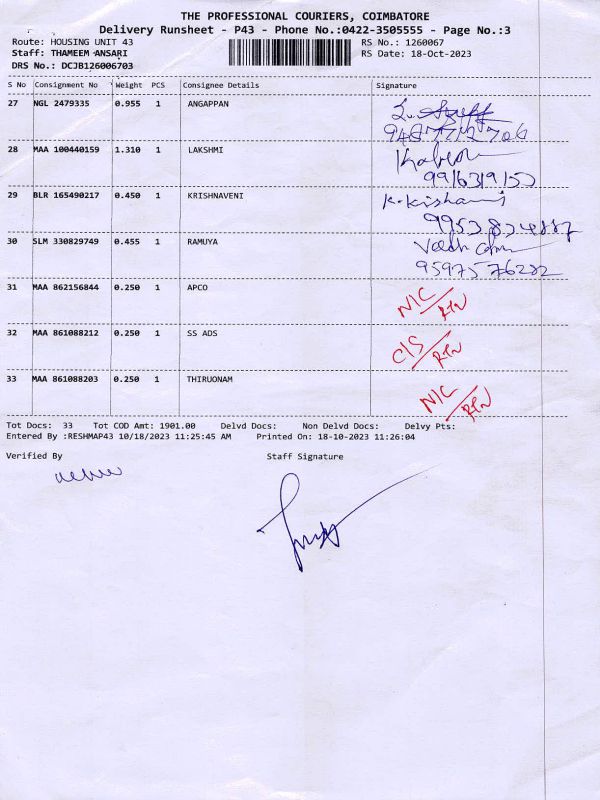 THE PROFESSIONAL COURIERS, COIMBATORE
Delivery Runsheet - P43 - Phone No.:0422-3505555 - Page No.:3
Route: HOUSING UNIT 43 RS No.: 1260067
Staff: THAMEEM ANSARI RS Date: 18-Oct-2023
DRS No.: DCJB126006703
S No Consignment No Weight PCS Consignee Details Signature
27 NGL 2479335 0.955 1 ANGAPPAN
28 MAA 100440159 1.310 1 LAKSHMI
29 BLR 165490217 0.450 1 KRISHNAVENI
30 SLM 330829749 0.455 1 RAMUYA
9597576282
31 MAA 862156844 0.250 1 APCO N/C
RTN
32 MAA 861088212 0.250 1 SS ADS C/S
RTN
33 MAA 861088203 0.250 1 THIRUONAM N/C
RTN
Tot Docs: 33 Tot COD Amt: 1901.00 Delvd Docs: Non Delvd Docs: Delvy Pts:
Entered By :RESHMAP43 10/18/2023 11:25:45 AM Printed On: 18-10-2023 11:26:04
Verified By Staff Signature